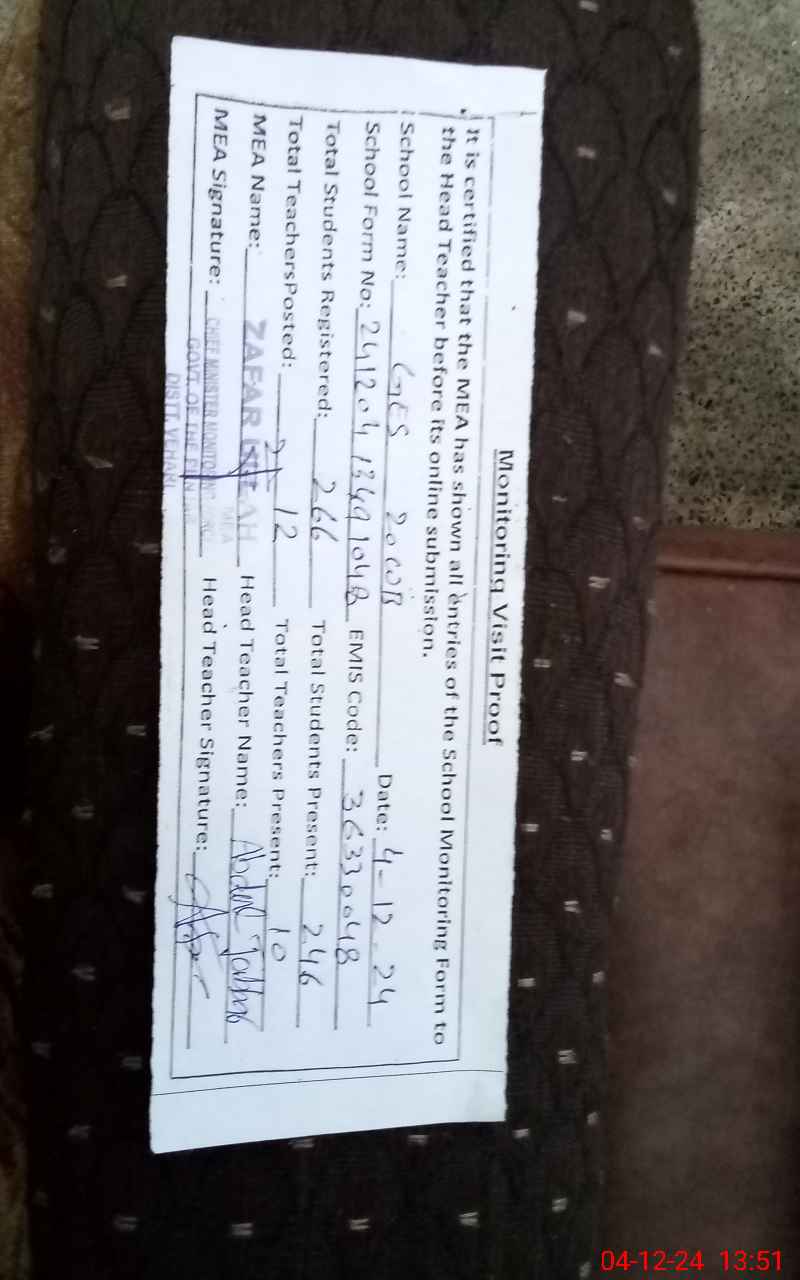 Monitoring Visit Proof
It is certified that the MEA has shown all entries of the School Monitoring Form to
the Head Teacher before its online submission.
School Name: GES 20 WB Date: 4-12-24
School Form No: 24120413491048 EMIS Code: 36330048
Total Students Registered: 266 Total Students Present: 246
Total TeachersPosted: 12 Total Teachers Present: 10
MEA Name: ZAFAR Head Teacher Name: Abdul Jabbar
MEA Signature: Head Teacher Signature:
MEA
CHIEF MINISTER MONITORING
GOVT. OF THE PUNJAB
DISTT. VEHARI
04-12-24 13:51